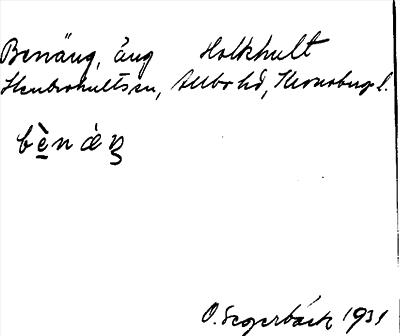 Benäng, äng Holkhult
Stenbrohultssn, Allbo hd, Kronobergs l.
bènäŋ
O. Segerbäck 1931